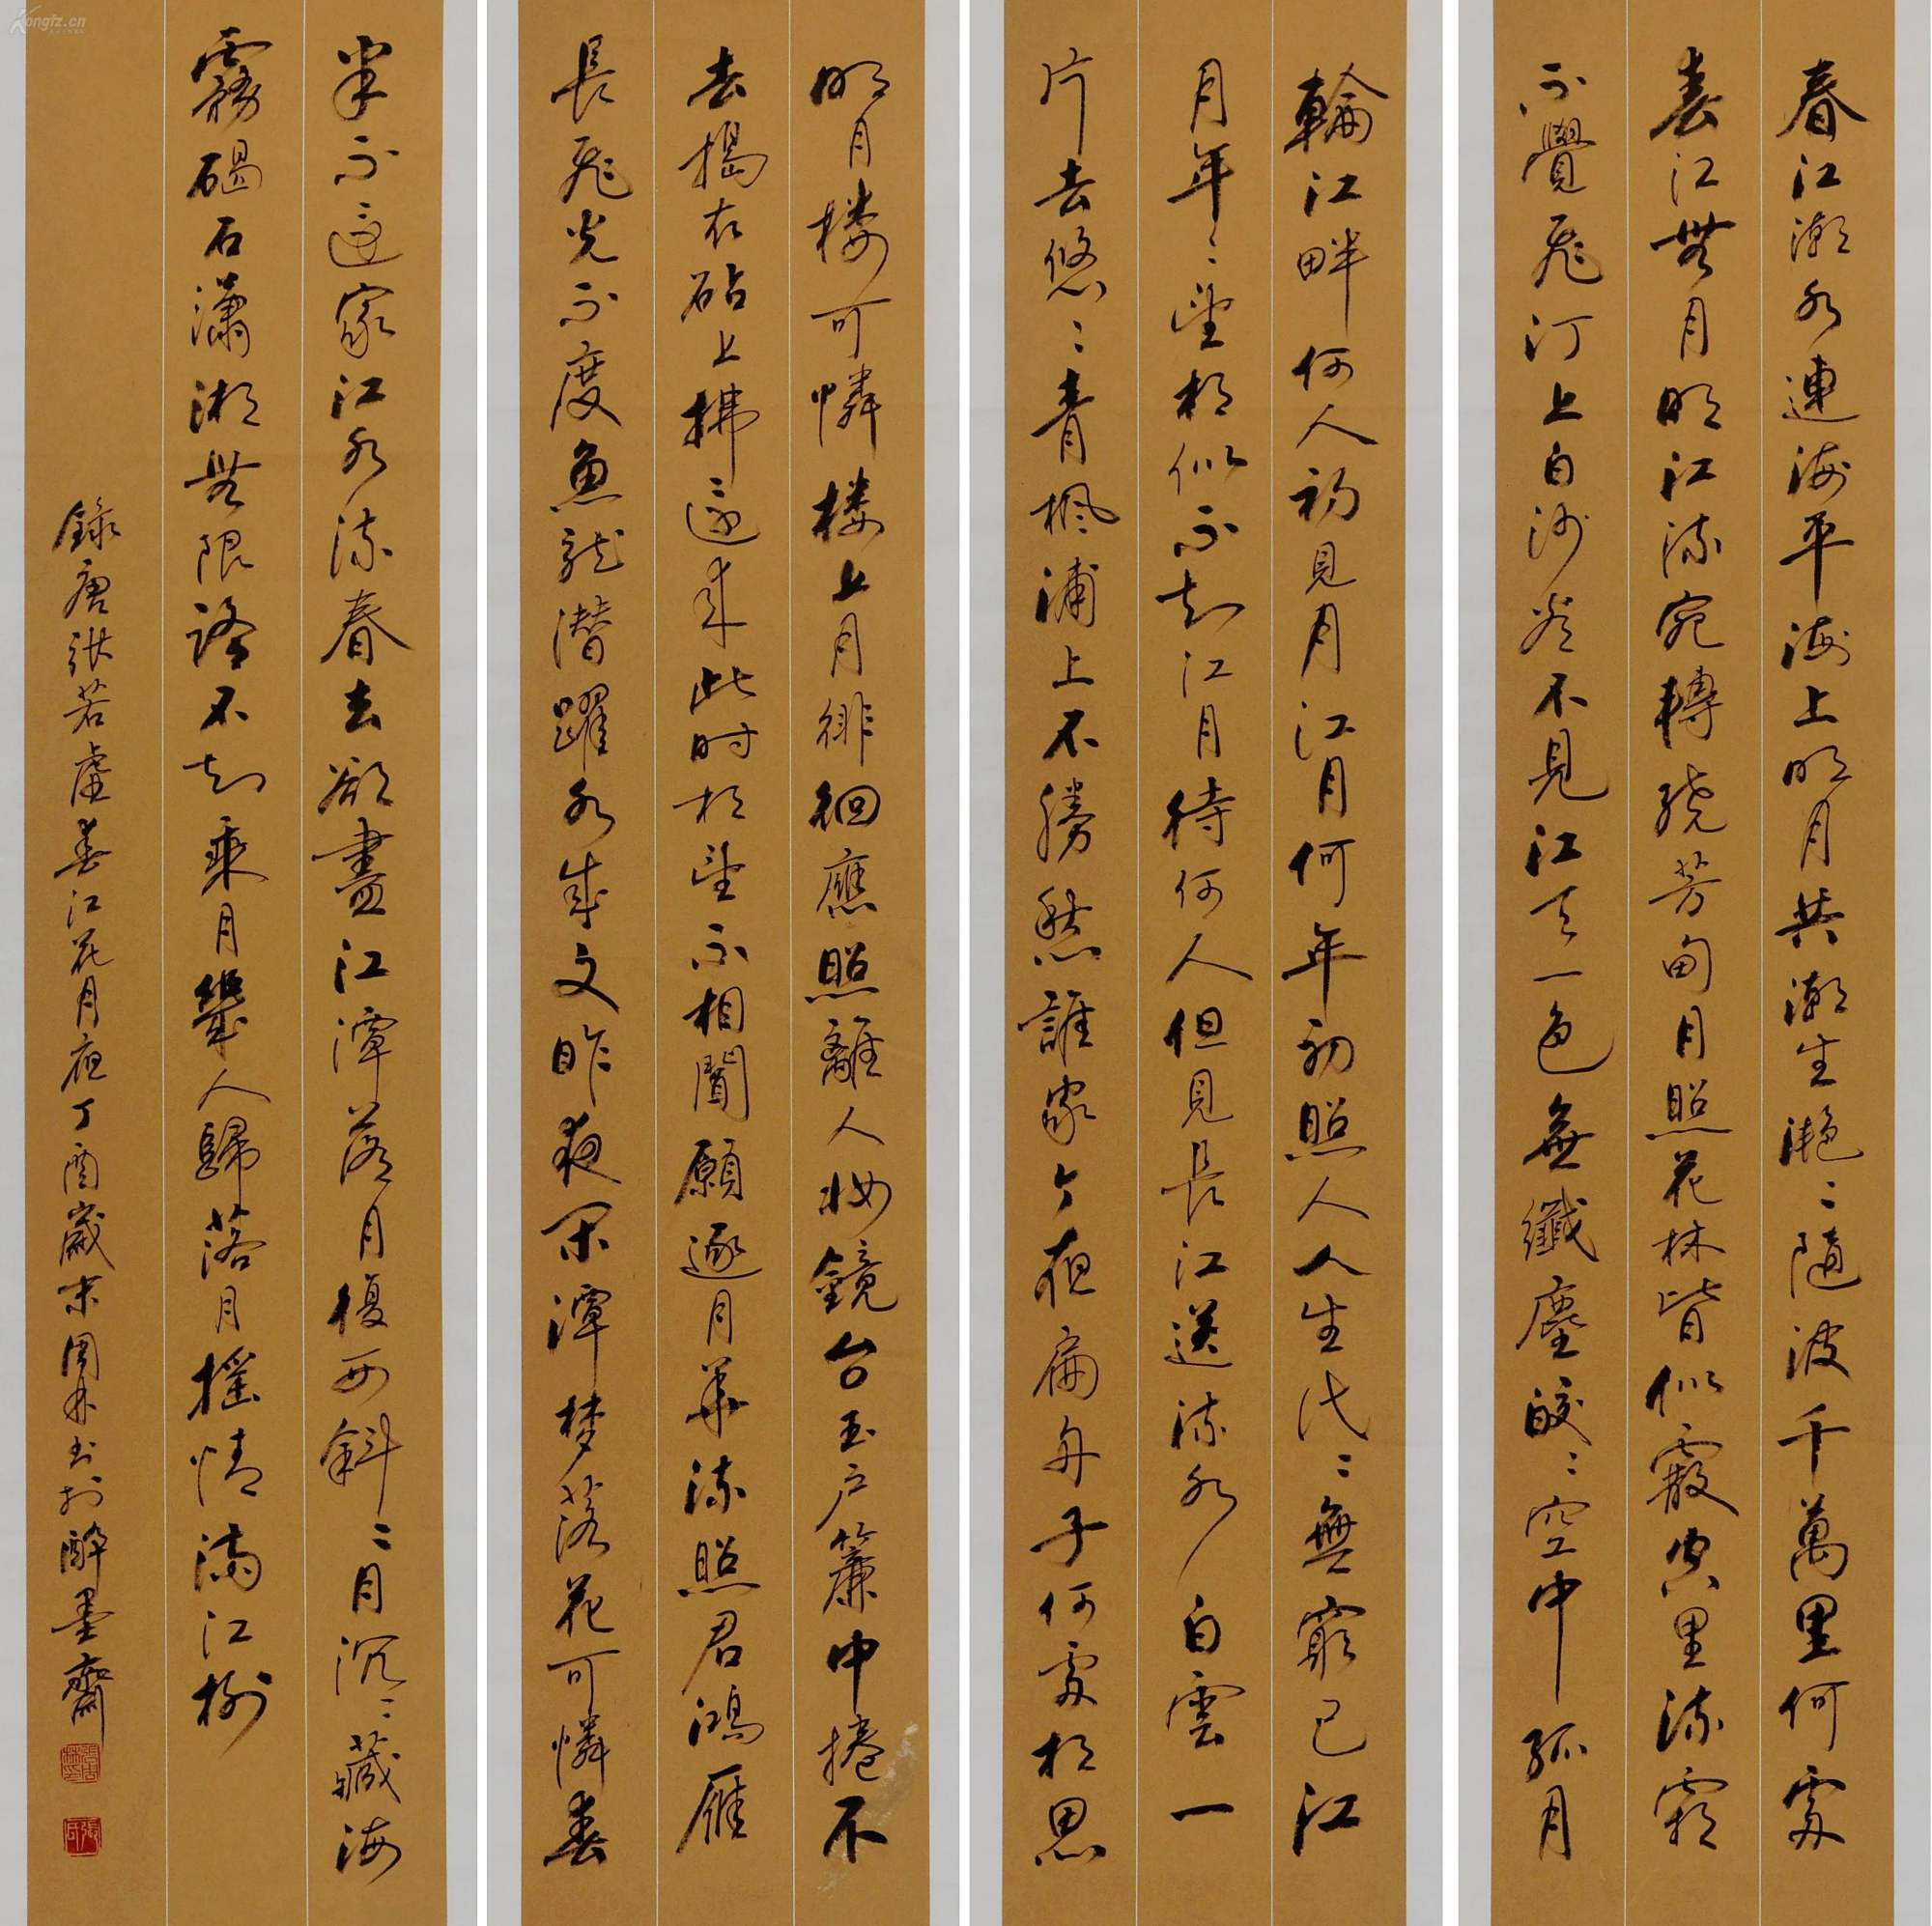 春江潮水連海平海上明月共潮生灧〻隨波千萬里何處
春江無月明江流宛轉繞芳甸月照花林皆似霰空里流霜
不覺飛汀上白沙看不見江天一色無纖塵皎〻空中孤月
輪江畔何人初見月江月何年初照人人生代〻無窮已江
月年〻望相似不知江月待何人但見長江送流水白雲一
片去悠〻青楓浦上不勝愁誰家今夜扁舟子何處相思
明月楼可憐楼上月徘徊應照離人妝鏡台玉户簾中捲不
去搗衣砧上拂還来此时相望不相聞願逐月華流照君鴻雁
長飛光不度魚龍潛躍水成文昨夜閑潭梦落花可憐春
半不還家江水流春去欲盡江潭落月復西斜〻月沉〻藏海
霧碣石瀟湘無限路不知乘月幾人歸落月摇情滿江樹
錄唐張若虛春江花月夜丁酉歲末周林书於醉墨齋
Kongfz.cn